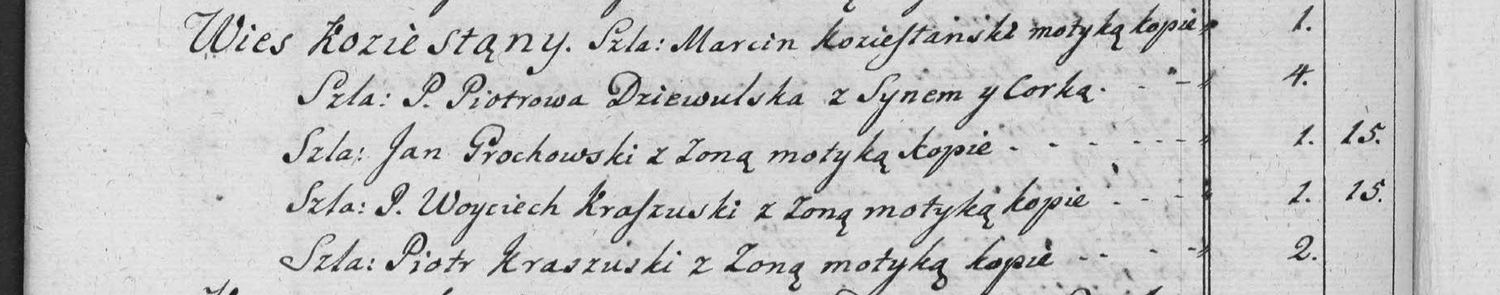 Wies Koziestąny. Szla: Marcin Koziestański motyką kopie 1.
Szla: P. Piotrowa Dziewulska z Synem y Corką. 4.
Szla: Jan Grochowski z Zoną motyką kopie 1. 15.
Szla: P. Woyciech Kraszuski z Zoną motyką kopie 1. 15.
Szla: Piotr Kraszuski z Zoną motyką kopie 2.